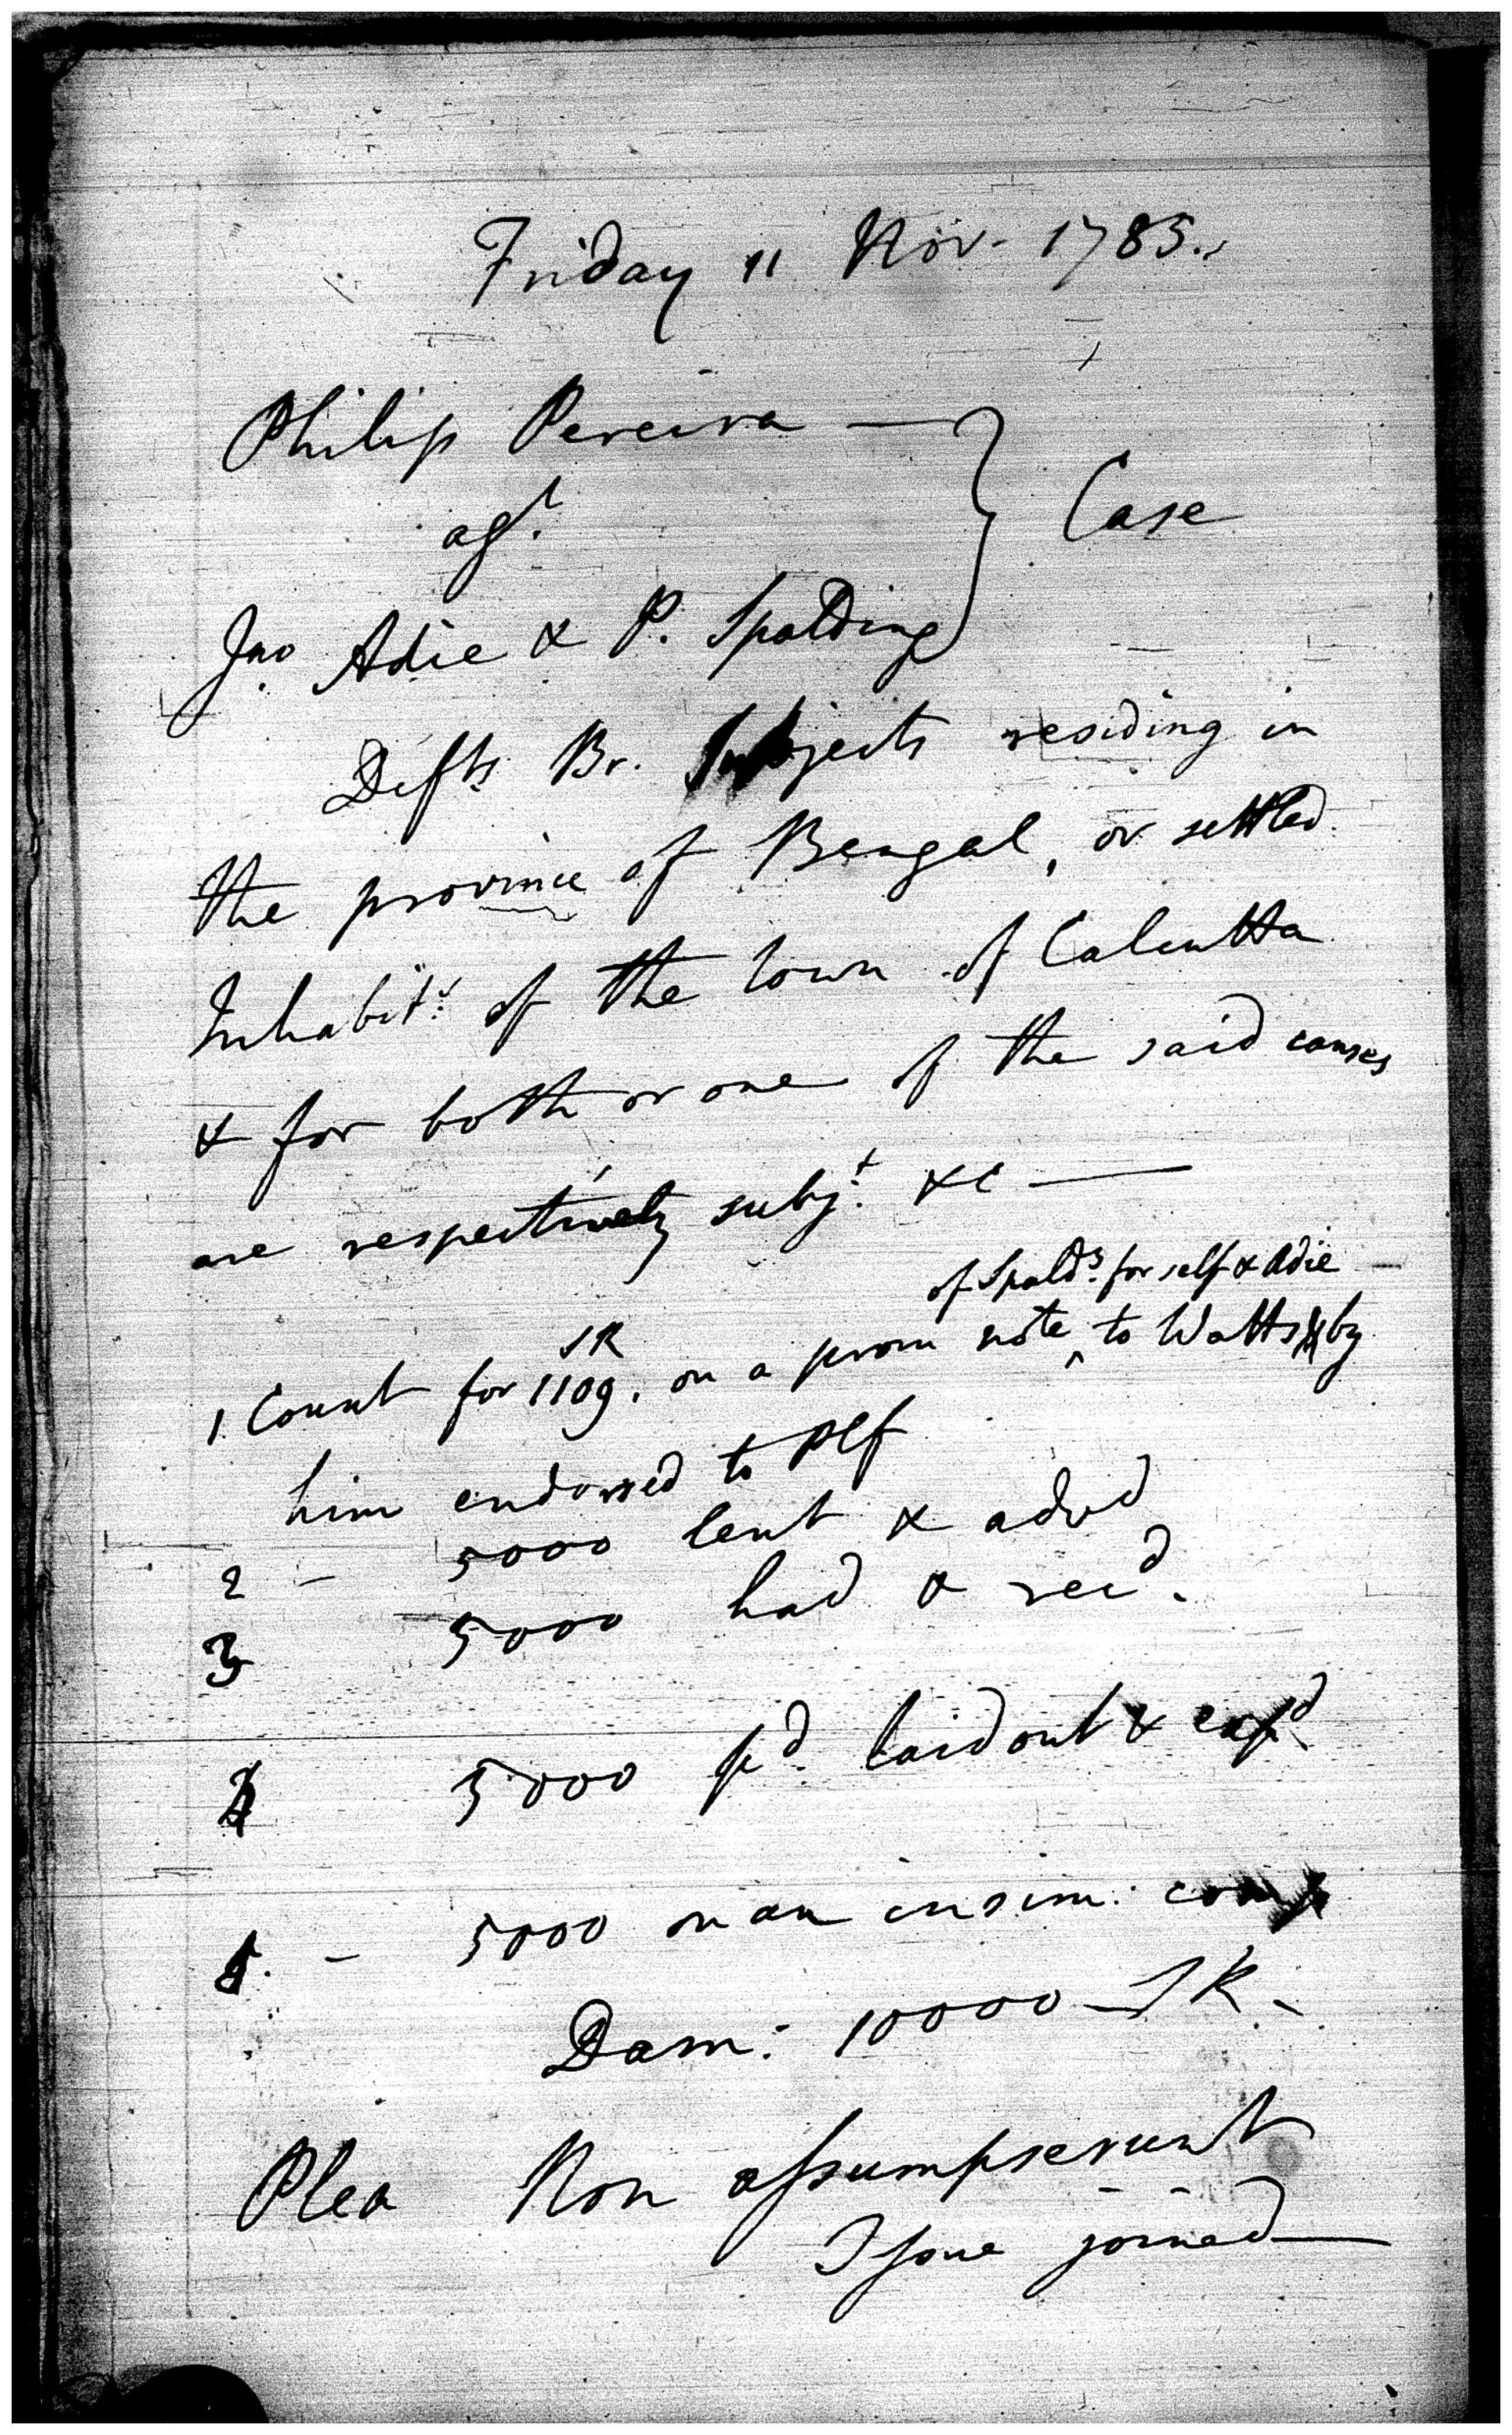 Friday 11 Nov. 1785.
Philip Pereira —
agt.
Case
Jno. Adie & P. Spalding
Defts. Br. Subjects residing in
the province of Bengal, or settled
Inhabitts. of the town of Calcutta
& for both or one of the said causes
are respectively subjt. &c —
of Spaldg. for self & Adie —
SR
1 Count for 1109. on a prom note ^ to Watts & by
him endorsed to Plf
2 - 5000 lent & advd
3 5000 had & recd.
4 5000 pd. laid out & expd
5. - 5000 on an insim: comp
Dam: 10000 SR.
Plea Non assumpserunt
Issue joined —